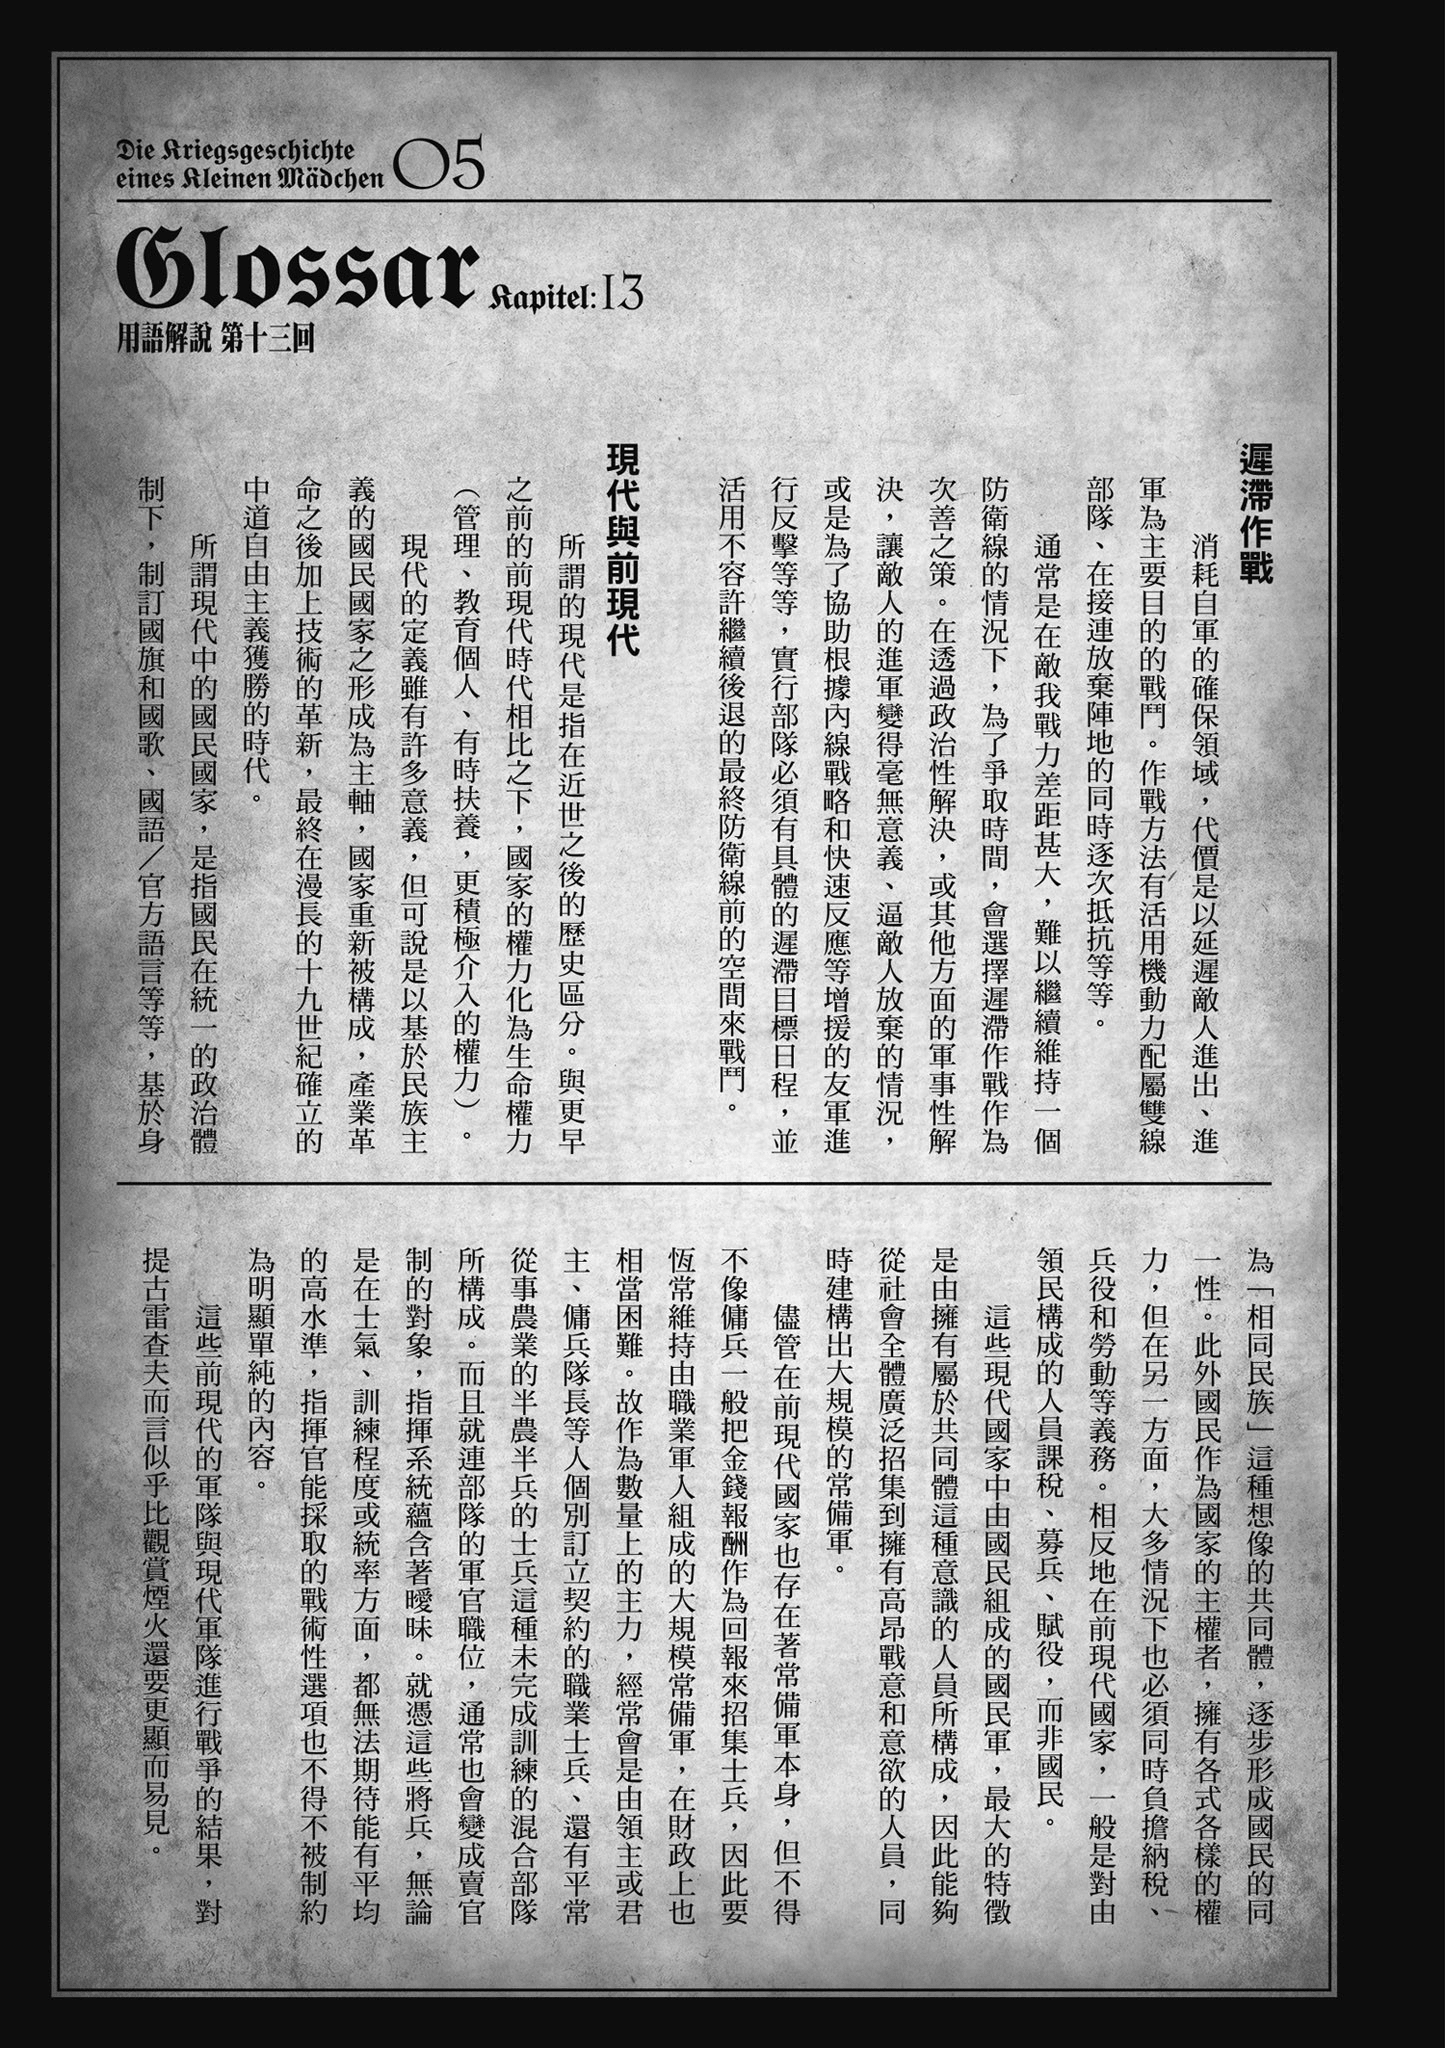 Die Kriegsgeschichte
eines Kleinen Mädchen 05
Glossar Kapitel:13
用語解說 第十三回
遲滯作戰
消耗自軍的確保領域，代價是以延遲敵人進出、進
軍為主要目的的戰鬥。作戰方法有活用機動力配屬雙線
部隊、在接連放棄陣地的同時逐次抵抗等等。
通常是在敵我戰力差距甚大，難以繼續維持一個
防衛線的情況下，為了爭取時間，會選擇遲滯作戰作為
次善之策。在透過政治性解決，或其他方面的軍事性解
決，讓敵人的進軍變得毫無意義、逼敵人放棄的情況，
或是為了協助根據內線戰略和快速反應等增援的友軍進
行反擊等等，實行部隊必須有具體的遲滯目標日程，並
活用不容許繼續後退的最終防衛線前的空間來戰鬥。
現代與前現代
所謂的現代是指在近世之後的歷史區分。與更早
之前的前現代時代相比之下，國家的權力化為生命權力
（管理、教育個人、有時扶養，更積極介入的權力）。
現代的定義雖有許多意義，但可說是以基於民族主
義的國民國家之形成為主軸，國家重新被構成，產業革
命之後加上技術的革新，最終在漫長的十九世紀確立的
中道自由主義獲勝的時代。
所謂現代中的國民國家，是指國民在統一的政治體
制下，制訂國旗和國歌、國語／官方語言等等，基於身
為「相同民族」這種想像的共同體，逐步形成國民的同
一性。此外國民作為國家的主權者，擁有各式各樣的權
力，但在另一方面，大多情況下也必須同時負擔納稅、
兵役和勞動等義務。相反地在前現代國家，一般是對由
領民構成的人員課稅、募兵、賦役，而非國民。
這些現代國家中由國民組成的國民軍，最大的特徵
是由擁有屬於共同體這種意識的人員所構成，因此能夠
從社會全體廣泛招集到擁有高昂戰意和意欲的人員，同
時建構出大規模的常備軍。
儘管在前現代國家也存在著常備軍本身，但不得
不像傭兵一般把金錢報酬作為回報來招集士兵，因此要
恆常維持由職業軍人組成的大規模常備軍，在財政上也
相當困難。故作為數量上的主力，經常會是由領主或君
主、傭兵隊長等人個別訂立契約的職業士兵、還有平常
從事農業的半農半兵的士兵這種未完成訓練的混合部隊
所構成。而且就連部隊的軍官職位，通常也會變成賣官
制的對象，指揮系統蘊含著曖昧。就憑這些將兵，無論
是在士氣、訓練程度或統率方面，都無法期待能有平均
的高水準，指揮官能採取的戰術性選項也不得不被制約
為明顯單純的內容。
這些前現代的軍隊與現代軍隊進行戰爭的結果，對
提古雷查夫而言似乎比觀賞煙火還要更顯而易見。